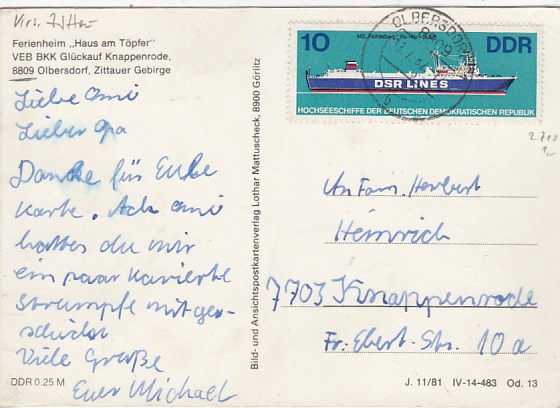 Ferienheim „Haus am Töpfer"
VEB BKK Glückauf Knappenrode,
8809 Olbersdorf, Zittauer Gebirge
Liebe Omi
Lieber Opa
Danke für Eure
Karte. Ach Omi
hattes du mir
ein paar karierte
Strumpfe mit ges-
chickt
Viele Grüße
Euer Michael
DDR 0.25 M
Bild- und Ansichtspostkartenverlag Lothar Mattuscheck, 8900 Görlitz
10 DDR
DSR LINES
HOCHSEESCHIFFE DER DEUTSCHEN DEMOKRATISCHEN REPUBLIK
OLBERSDORF
8809
b
2710
An Fam. Herbert
Heinrich
7703 Knappenrode
Fr.-Ebert-Str. 10a
J. 11/81 IV-14-483 Od. 13